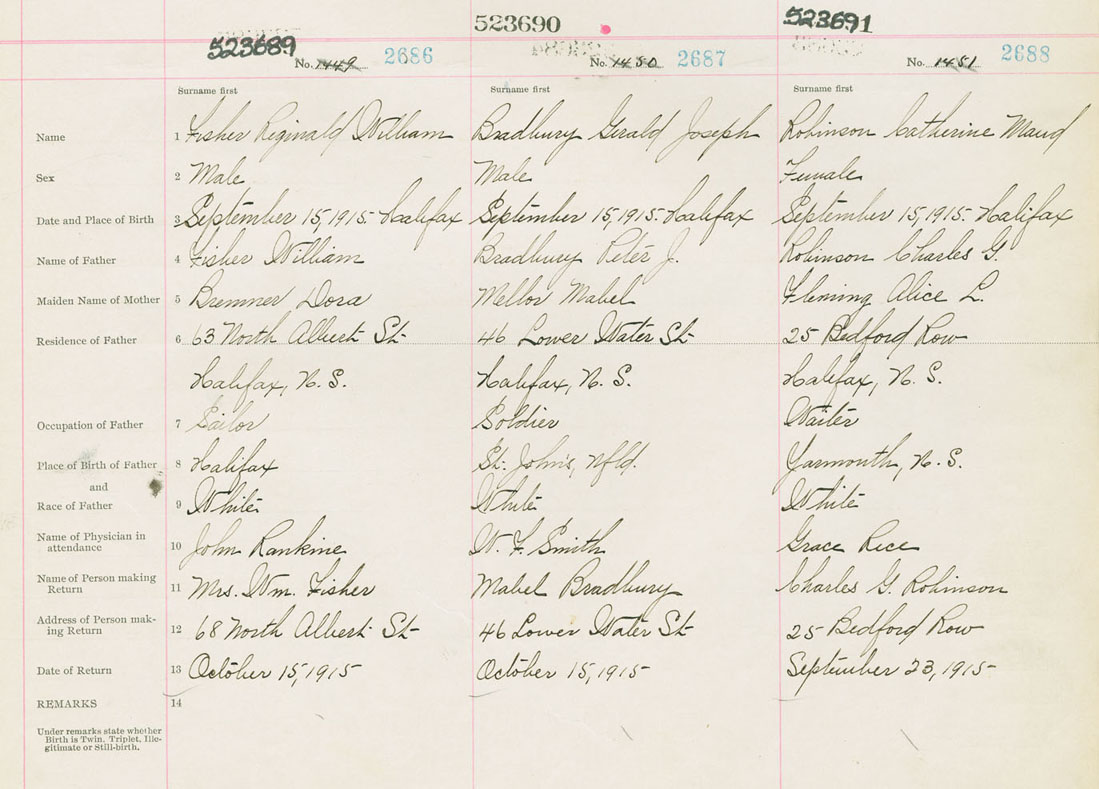 523689 523690 523691
No. 1449 2686 No. 1450 2687 No. 1451 2688
Surname first Surname first Surname first
Name 1 Fisher Reginald William Bradbury Gerald Joseph Robinson Catherine Maud
Sex 2 Male Male Female
Date and Place of Birth 3 September 15, 1915 - Halifax September 15, 1915 - Halifax September 15, 1915. Halifax
Name of Father 4 Fisher William Bradbury Peter J. Robinson Charles G.
Maiden Name of Mother 5 Bremner Dora Mellor Mabel Fleming Alice L.
Residence of Father 6 63 North Albert St 46 Lower Water St 25 Bedford Row
Halifax, N. S. Halifax, N. S. Halifax, N. S.
Occupation of Father 7 Sailor Soldier Waiter
Place of Birth of Father 8 Halifax St. John's, Nfld. Yarmouth, N. S.
and
Race of Father 9 White White White
Name of Physician in
attendance 10 John Rankine W. F. Smith Grace Rice
Name of Person making
Return 11 Mrs. Wm. Fisher Mabel Bradbury Charles G. Robinson
Address of Person mak-
ing Return 12 68 North Albert St 46 Lower Water St 25 Bedford Row
Date of Return 13 October 15, 1915 October 15, 1915 September 23, 1915
REMARKS 14
Under remarks state whether
Birth is Twin, Triplet, Ille-
gitimate or Still-birth.